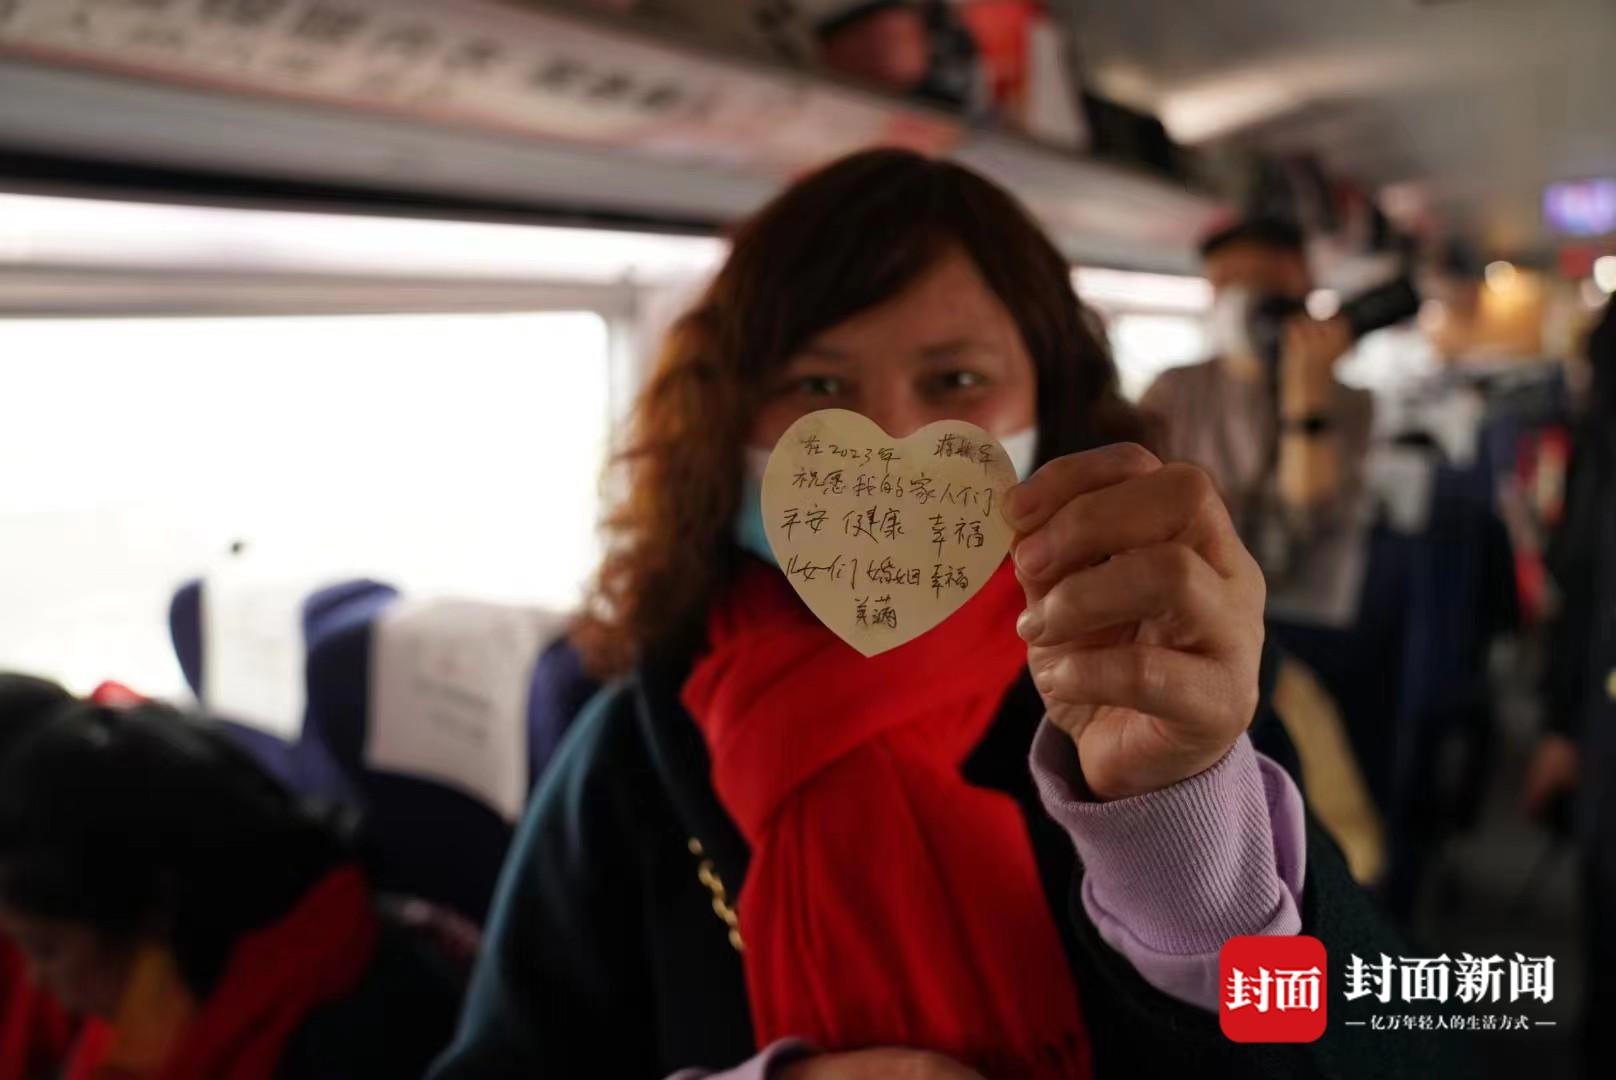 在2023年
祝愿我的家人们
平安 健康 幸福
儿女们婚姻幸福
美满
封面
封面新闻
亿万年轻人的生活方式